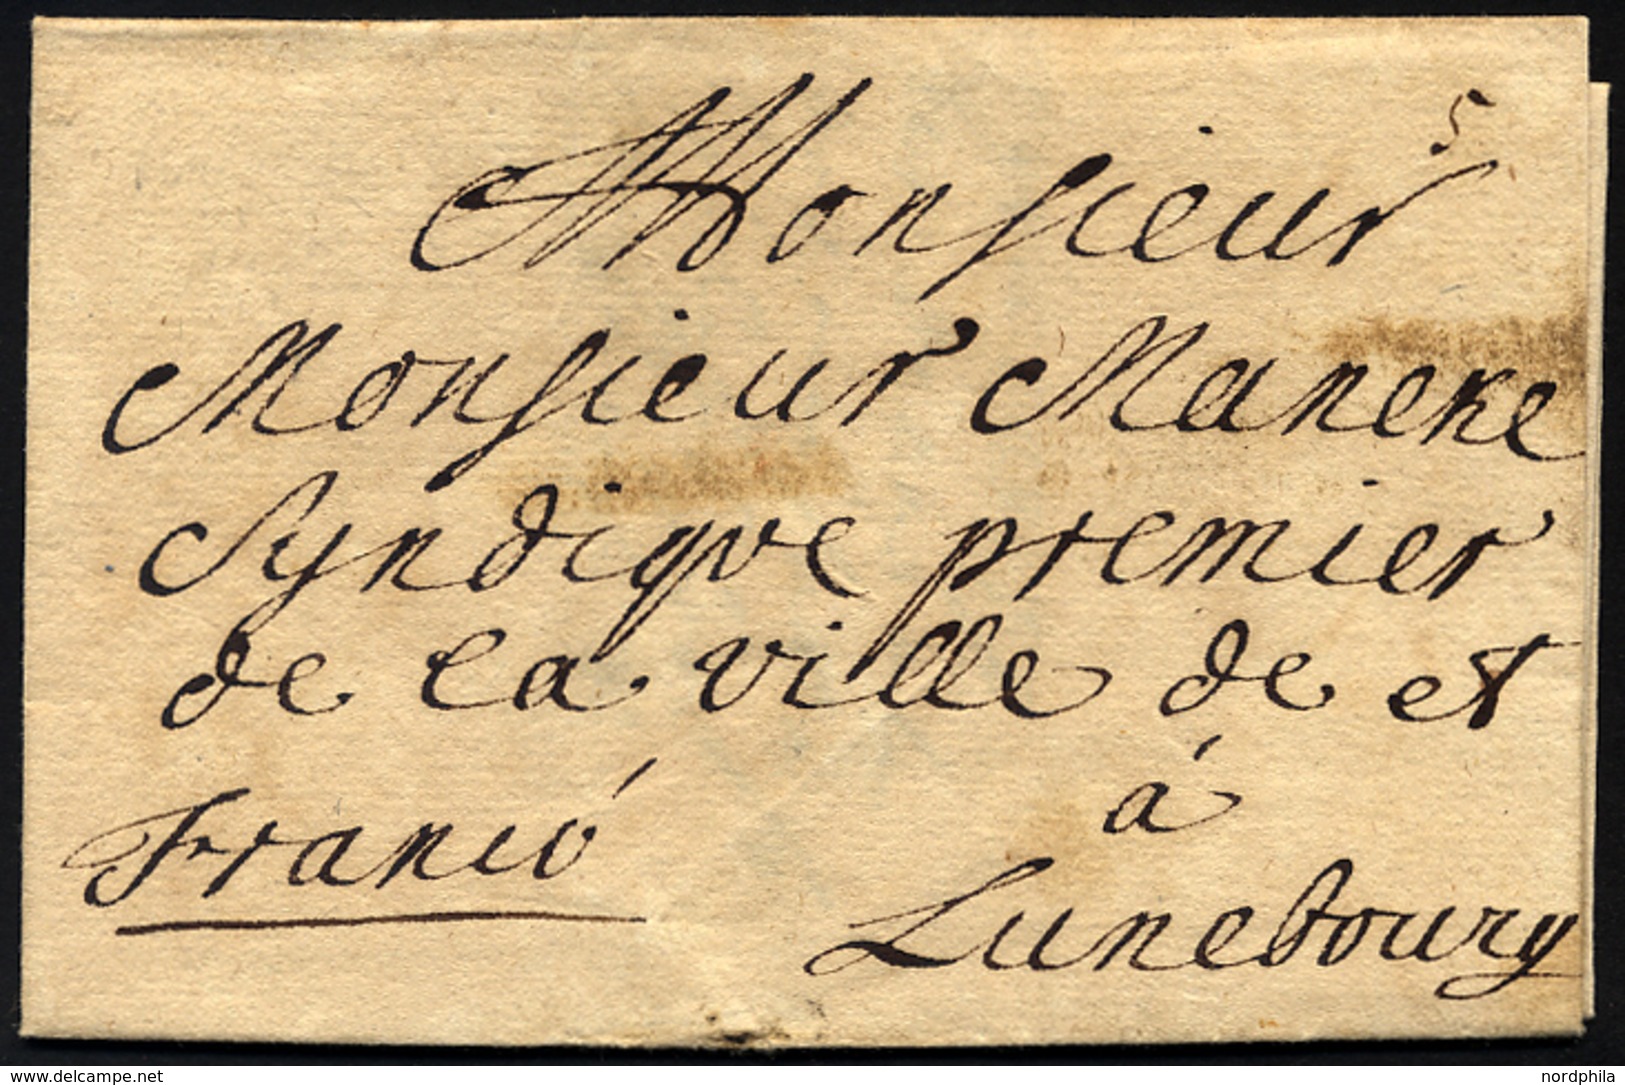 5
Monsieur
Monsieur Maneke
Syndique premier
de la ville de et
á
Franco
Lunebourg
delcampe.net
nordphila